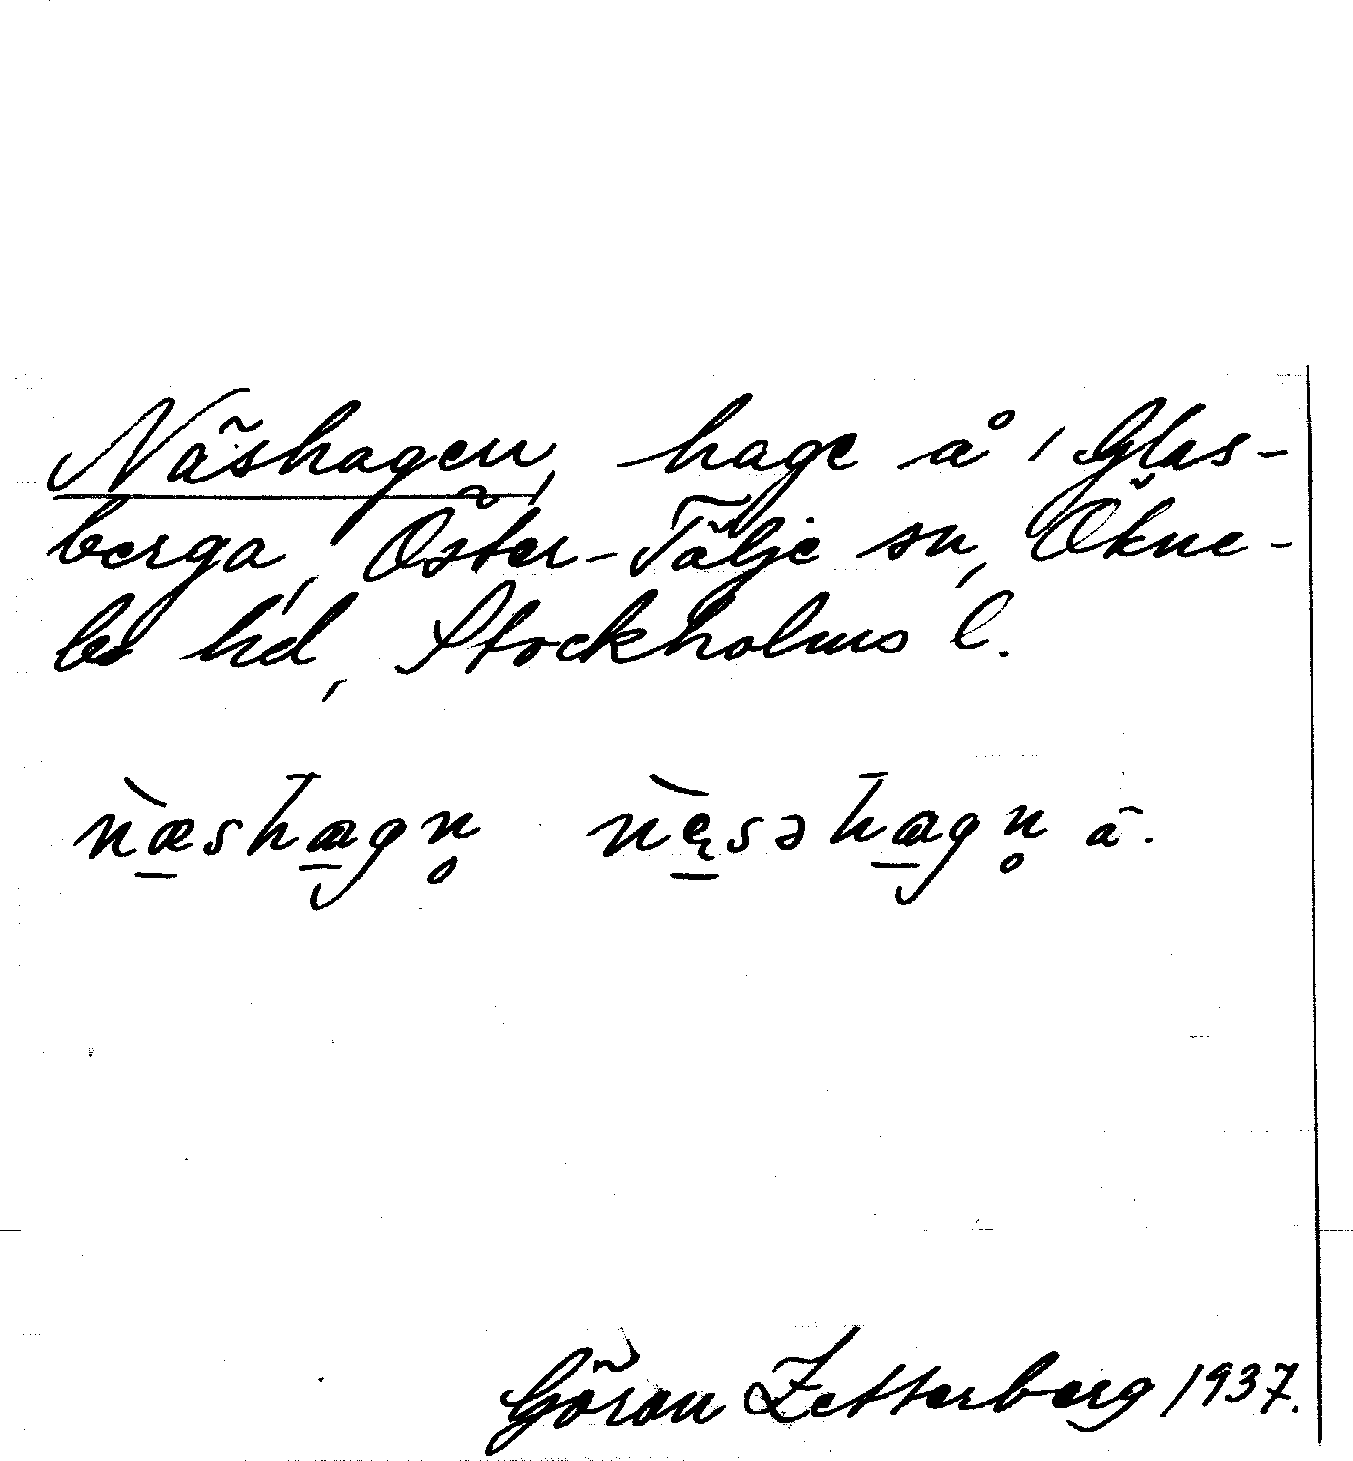 Näshagen, hage å 1 Glas-
berga, Öster-Tälje sn, Økne-
bo hd, Stockholms l.
næ̀shagn̥ nę̀səhagn̥ ā.
Göran Zetterberg 1937.